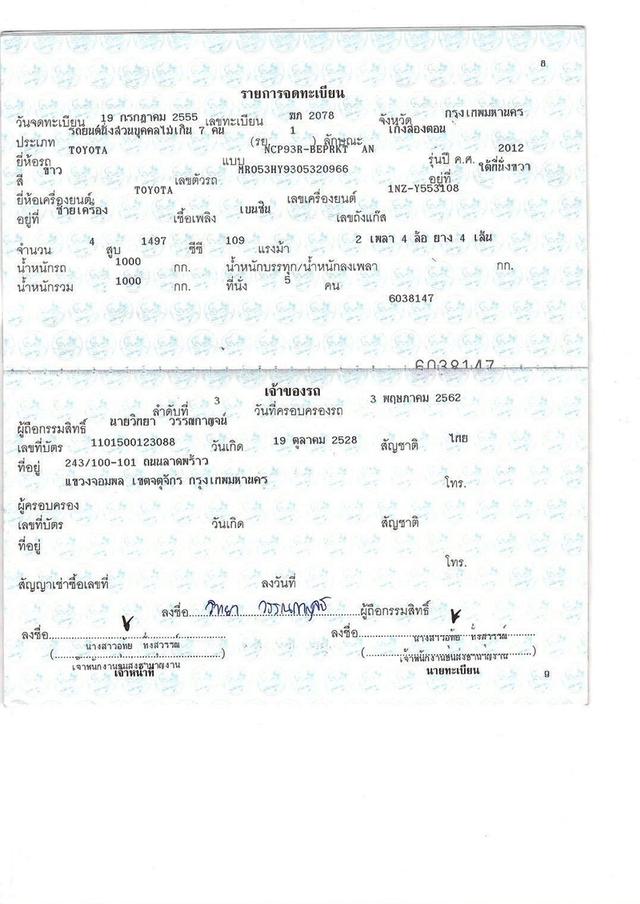 8
รายการจดทะเบียน
วันจดทะเบียน 19 กรกฎาคม 2555 เลขทะเบียน ฆภ 2078 จังหวัด กรุงเทพมหานคร
ประเภท รถยนต์นั่งส่วนบุคคลไม่เกิน 7 คน (รย 1 ) ลักษณะ เก๋งสองตอน
ยี่ห้อรถ TOYOTA แบบ NCP93R-BEPRKT AN รุ่นปี ค.ศ. 2012
สี ขาว เลขตัวรถ MR053HY9305320966 อยู่ที่ ใต้ที่นั่งขวา
ยี่ห้อเครื่องยนต์ TOYOTA เลขเครื่องยนต์ 1NZ-Y553108
อยู่ที่ ซ้ายเครื่อง เชื้อเพลิง เบนซิน เลขถังแก๊ส
จำนวน 4 สูบ 1497 ซีซี 109 แรงม้า 2 เพลา 4 ล้อ ยาง 4 เส้น
น้ำหนักรถ 1000 กก. น้ำหนักบรรทุก/น้ำหนักลงเพลา กก.
น้ำหนักรวม 1000 กก. ที่นั่ง 5 คน
6038147
6038147
เจ้าของรถ
ลำดับที่ 3 วันที่ครอบครองรถ 3 พฤษภาคม 2562
ผู้ถือกรรมสิทธิ์ นายวิทยา วรรณกาญจน์
เลขที่บัตร 1101500123088 วันเกิด 19 ตุลาคม 2528 สัญชาติ ไทย
ที่อยู่ 243/100-101 ถนนลาดพร้าว
แขวงจอมพล เขตจตุจักร กรุงเทพมหานคร โทร.
ผู้ครอบครอง
เลขที่บัตร วันเกิด สัญชาติ
ที่อยู่
โทร.
สัญญาเช่าซื้อเลขที่ ลงวันที่
ลงชื่อ วิทยา วรรณกาญจน์ ผู้ถือกรรมสิทธิ์
ลงชื่อ ลงชื่อ
นางสาวอุทัย นางสาวอุทัย
เจ้าพนักงานขนส่งชำนาญงาน เจ้าพนักงานขนส่งชำนาญงาน
เจ้าหน้าที่ นายทะเบียน
9